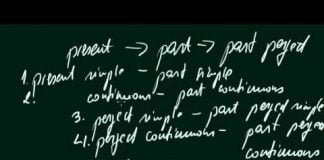 present → past → past perfect
1. present simple – past simple
2. continuous – past continuous
3. perfect simple – past perfect simple
4. perfect continuous – past perfect
continuous